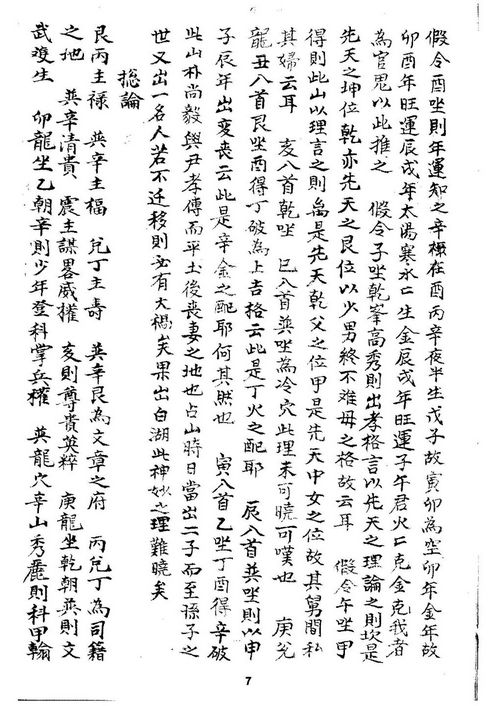 假令酉坐則年運知之辛樞在酉丙辛夜半生戊子故寅卯為空卯年金年故
卯酉年旺運辰戌年太陽寒水二生金辰戌年旺運子午君火二克金克我者
為官鬼以此推之　假令子坐乾峯高秀則出孝格言以先天之理論之則坎是
先天之坤位乾亦先天之艮位以少男終不难母之格故云耳　假令午坐甲
得則此山以理言之則离是先天乾父之位甲是先天中女之位故其舅間私
其婦云耳　亥入首乾坐　巳入首巽坐為冷穴此理未可曉可嘆也　庚兌
龍丑入首艮坐酉得丁破為上吉格云此是丁火之配耶　辰入首巽坐則以申
子辰年出変丧云此是辛金之配耶何其然也　寅入首乙坐丁酉得辛破
此山朴尚毅與尹孝傳而平土後丧妻之地也占山時日當出二子而至孫子之
世又出一名人若不迁移則必有大禍矣果出白湖此神妙之理難曉矣
揔論
艮丙主祿　巽辛主福　兌丁主壽　巽辛艮為文章之府　丙兌丁為司籍
之地　巽辛清貴　震主謀畧威權　亥則尊貴英粹　庚龍坐乾朝巽則文
武竝生　卯龍坐乙朝辛則少年登科掌兵權　巽龍穴辛山秀麗則科甲翰
7